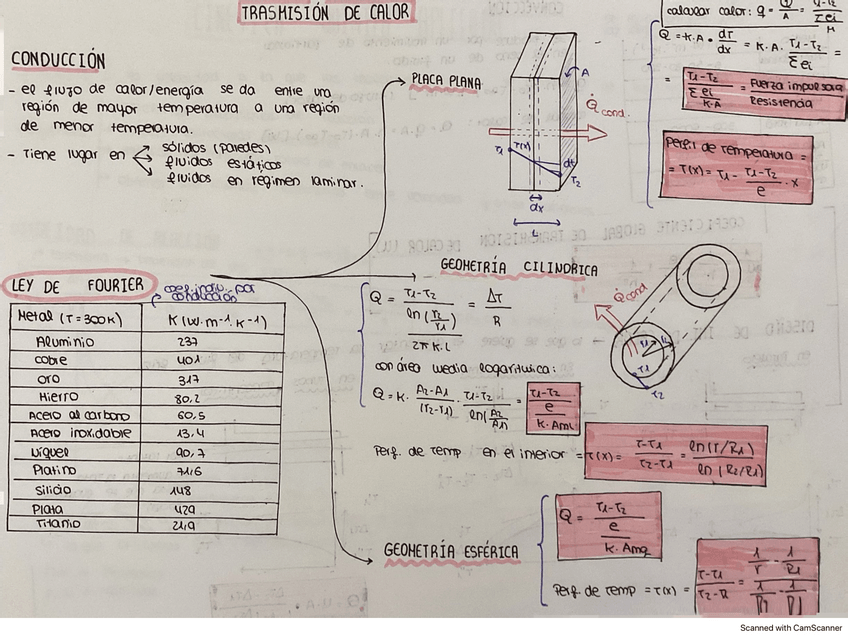 TRASMISIÓN DE CALOR
CONDUCCIÓN
- el flujo de calor/energía se da entre una
región de mayor temperatura a una región
de menor temperatura.
- Tiene lugar en
sólidos (paredes)
fluidos estáticos
fluidos en régimen laminar.
PLACA PLANA
A
Q̇cond.
T1
T(x)
dt
T2
dx
L
calcular calor: q = Q/A =
Q = K.A. dT/dx = K.A. T1-T2/Σei =
= T1-T2 / Σei/K.A = Fuerza impulsora / Resistencia
Perfil de temperatura =
= T(x) = T1 - T1-T2/e · x
LEY DE FOURIER
conducción
Metal (T=300K) K (W.m-1.K-1)
Aluminio 237
Cobre 401
Oro 317
Hierro 80,2
Acero al carbono 60,5
Acero inoxidable 13,4
Níquel 90,7
Platino 71,6
Silicio 148
Plata 429
Titanio 21,9
GEOMETRÍA CILINDRICA
Q = T1-T2 / (ln(r2/r1) / 2π K.L) = ΔT/R
con área media logarítmica:
Q = K. A2-A1/(r2-r1) · T1-T2/ln(A2/A1) = T1-T2 / (e / K.AmL)
Perf. de temp en el interior = T(x) = T-T1/T2-T1 = ln(r/R1)/ln(R2/R1)
Q̇cond
T1
T2
GEOMETRÍA ESFÉRICA
Q = T1-T2 / (e / K.Amg)
Perf. de temp = T(x) =
Scanned with CamScanner